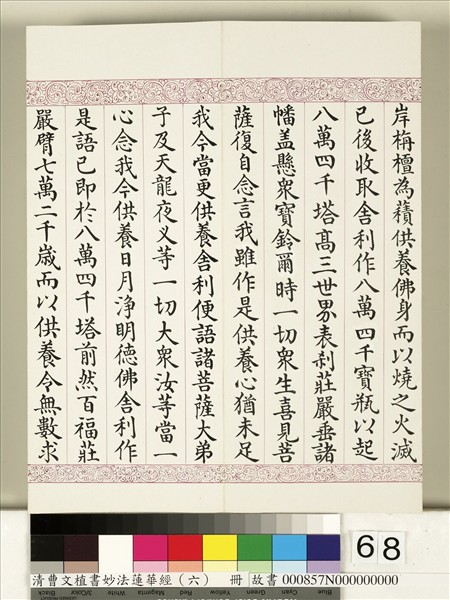 岸栴檀為𧂐供養佛身而以燒之火滅
已後收取舍利作八萬四千寶瓶以起
八萬四千塔髙三世界表刹莊嚴垂諸
幡盖懸衆寶鈴爾時一切衆生喜見菩
薩復自念言我雖作是供養心猶未足
我今當更供養舍利便語諸菩薩大弟
子及天龍夜叉等一切大衆汝等當一
心念我今供養日月淨明德佛舍利作
是語已即於八萬四千塔前然百福莊
嚴臂七萬二千歲而以供養令無數求
68
清曹文植書妙法蓮華經（六） 冊 故書 000857N000000000
Black
3/Color
White
Magenta
Red
Yellow
Green
Cyan
Blue